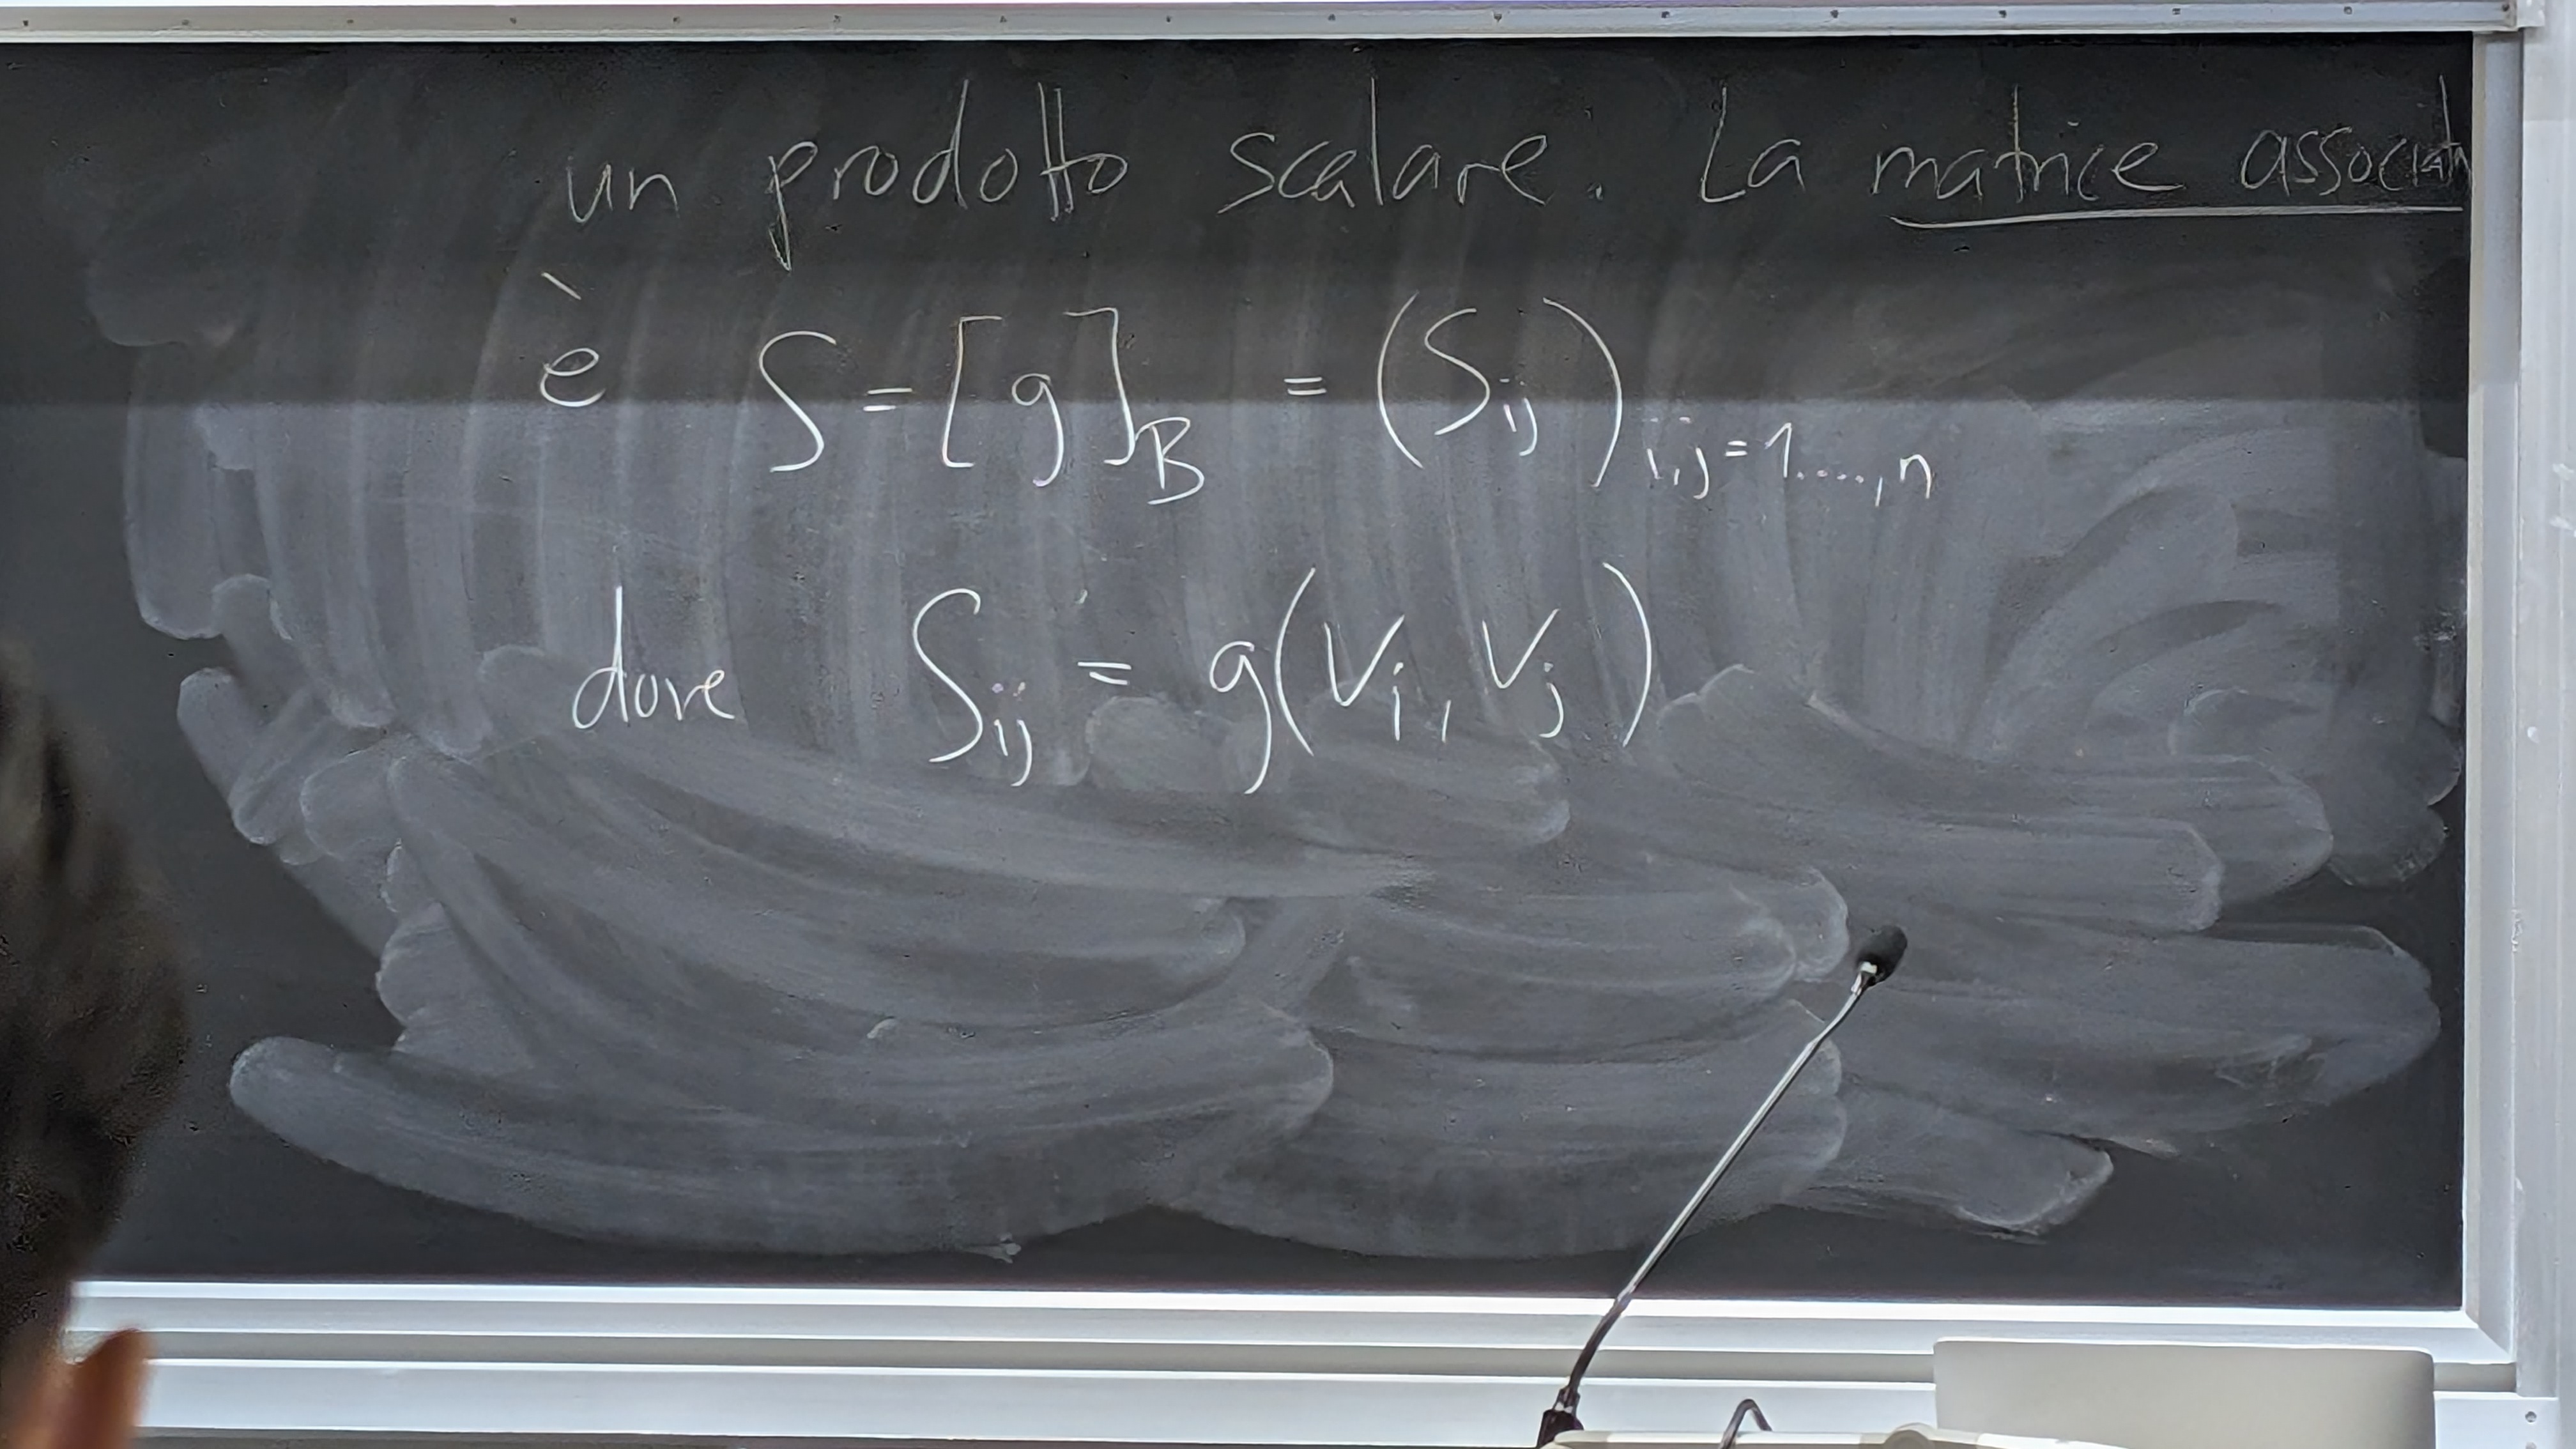 un prodotto scalare. La matrice associata
è S = [g]_B = (S_ij)_i,j=1,...,n
dove S_ij = g(v_i, v_j)